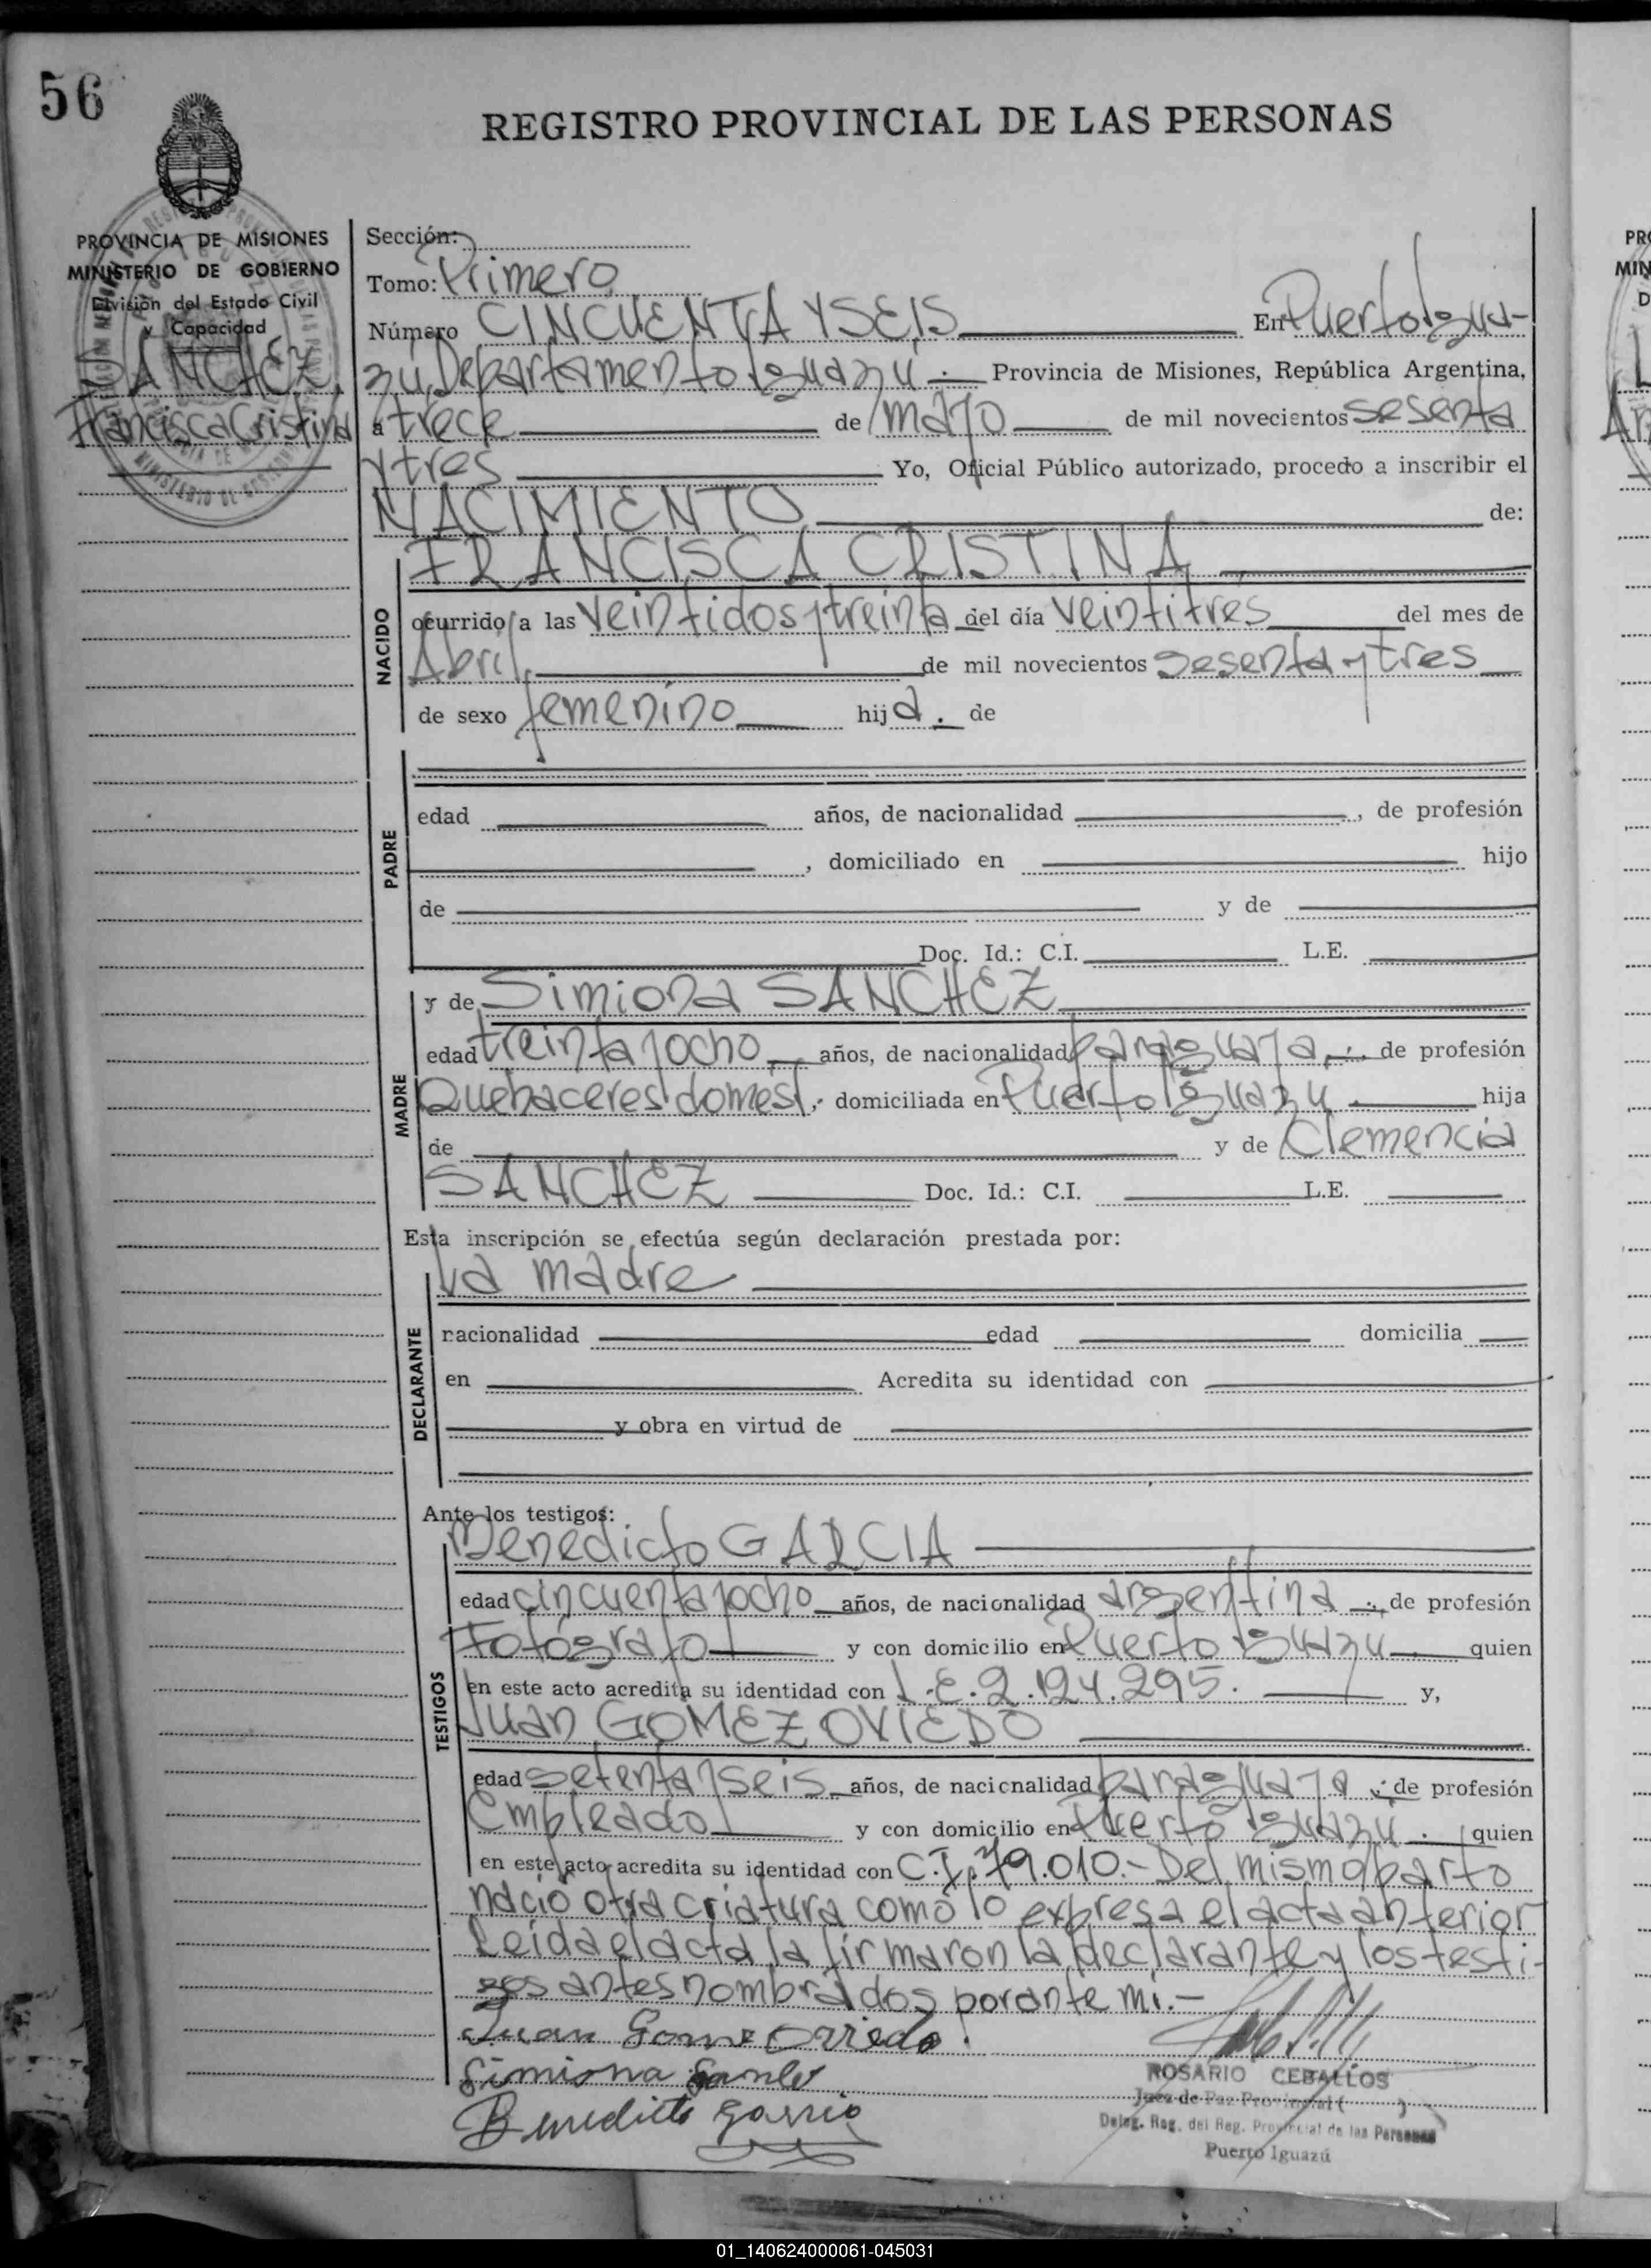 56
REGISTRO PROVINCIAL DE LAS PERSONAS
PROVINCIA DE MISIONES
MINISTERIO DE GOBIERNO
División del Estado Civil
y Capacidad
SANCHEZ,
Francisca Cristina
Sección:
Tomo: Primero
Número CINCUENTA Y SEIS En Puerto Igua-
zú, Departamento Iguazú.- Provincia de Misiones, República Argentina,
a trece de mayo de mil novecientos sesenta
y tres Yo, Oficial Público autorizado, procedo a inscribir el
NACIMIENTO de:
FRANCISCA CRISTINA
NACIDO
ocurrido a las veintidos y treinta del día veintitres del mes de
Abril de mil novecientos sesenta y tres
de sexo femenino hija. de
PADRE
edad años, de nacionalidad , de profesión
, domiciliado en hijo
de y de
Doc. Id.: C.I. L.E.
MADRE
y de Simiona SANCHEZ
edad treinta y ocho años, de nacionalidad paraguaya, de profesión
Quehaceres domést. domiciliada en Puerto Iguazú hija
de y de Clemencia
SANCHEZ Doc. Id.: C.I. L.E.
Esta inscripción se efectúa según declaración prestada por:
La madre
DECLARANTE
nacionalidad edad domicilia
en Acredita su identidad con
y obra en virtud de
Ante los testigos:
TESTIGOS
Benedicto GARCIA
edad cincuenta y ocho años, de nacionalidad argentina, de profesión
Fotógrafo y con domicilio en Puerto Iguazu quien
en este acto acredita su identidad con L.E. 2.124.295. y,
Juan GOMEZ OVIEDO
edad setenta y seis años, de nacionalidad paraguaya, de profesión
Empleado y con domicilio en Puerto Iguazú. quien
en este acto acredita su identidad con C.I. 79.010.- Del mismo parto
nació otra criatura como lo expresa el acta anterior
Leida el acta la firmaron la declarante y los testi-
gos antes nombrados por ante mi.-
Juan Gomez Orriedo
Simiona
Benedicto Garcia
ROSARIO CEBALLOS
Juez de Paz Provincial ( )
Deleg. Reg. del Reg. Provincial de las Personas
Puerto Iguazú
01_140624000061-045031